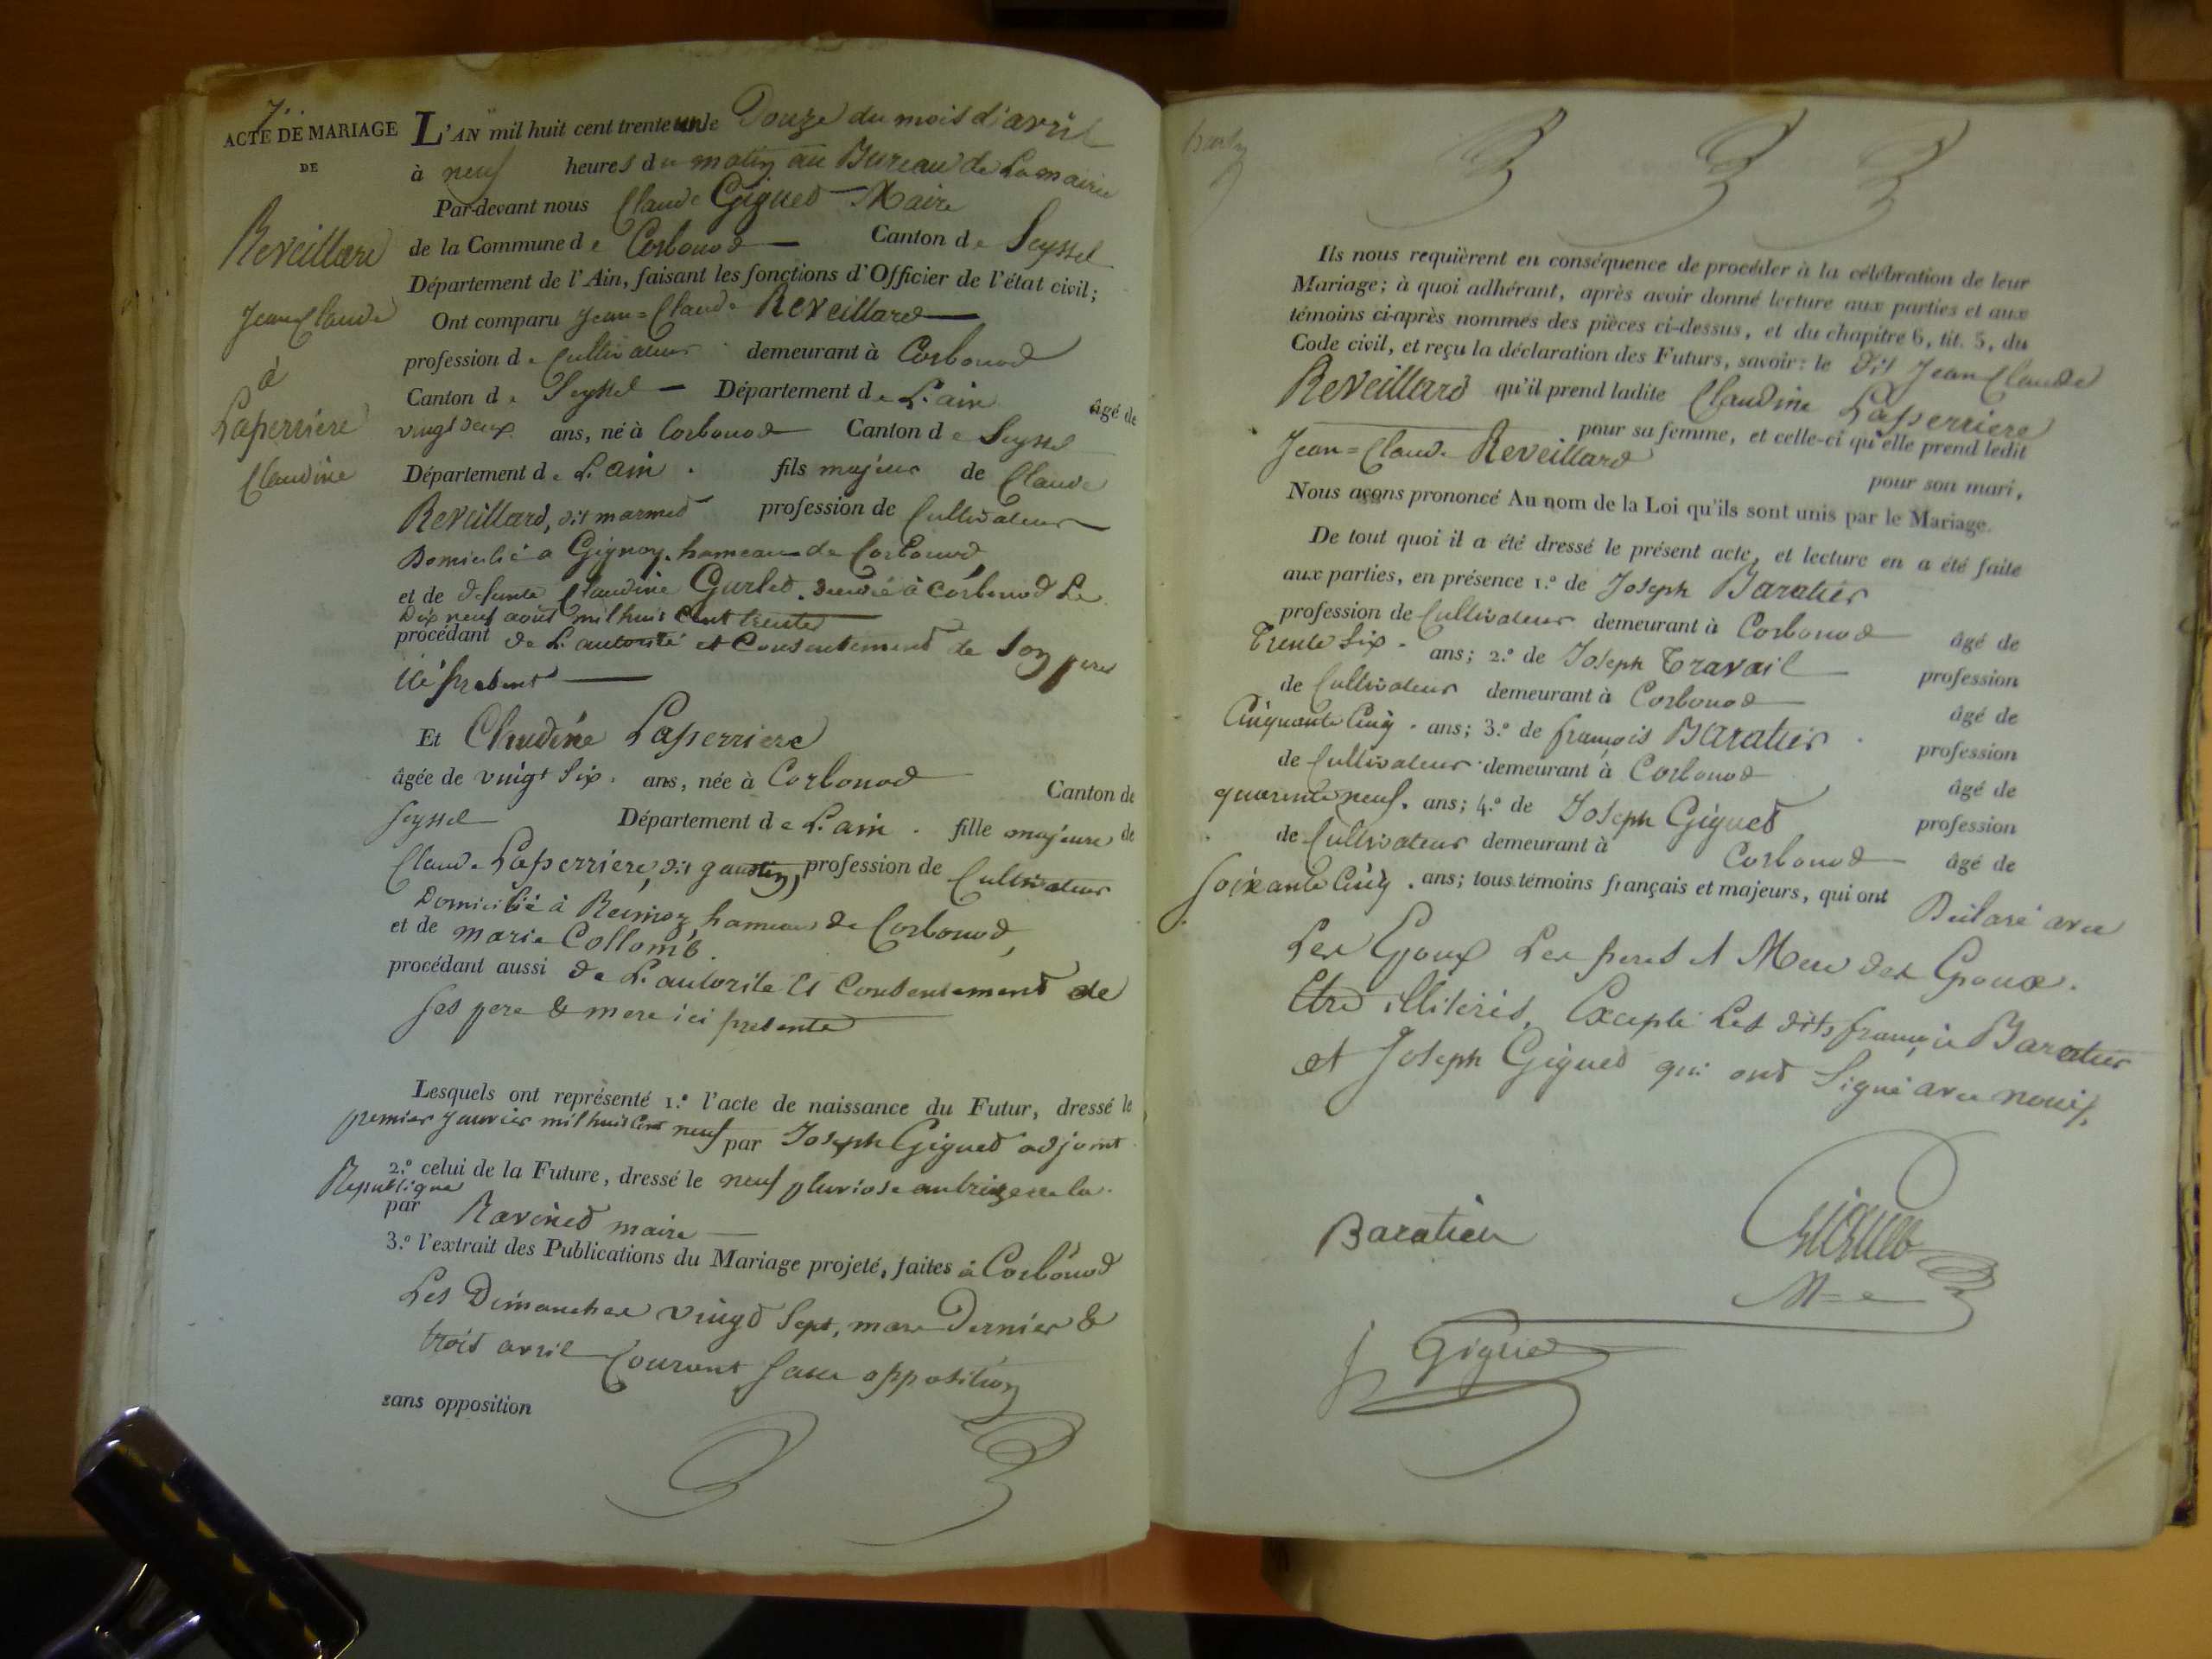 7.
ACTE DE MARIAGE
DE
Reveillard
Jean Claude
à
Laperriere
Claudine
L'AN mil huit cent trente un le Douze du mois d'avril
à neuf heures du matin au Bureau de La mairie
Par-devant nous Claude Giguet Maire
de la Commune de Corbonod Canton de Seyssel
Département de l'Ain, faisant les fonctions d'Officier de l'état civil;
Ont comparu Jean=Claude Reveillard
profession de Cultivateur demeurant à Corbonod
Canton de Seyssel Département de L'ain âgé de
vingt deux ans, né à Corbonod Canton de Seyssel
Département de L'ain. fils majeur de Claude
Reveillard, dit marmet profession de Cultivateur
Domicilié a Gignez, hameau de Corbonod,
et de defunte Claudine Gurlet. decedé à Corbonod Le
Dix neuf aout mil huit cent trente
procédant de L'autorité et Consentement de Son pere
ici present
Et Claudine Laperriere
âgée de vingt Six. ans, née à Corbonod Canton de
Seyssel Département de L'ain. fille majeure de
Claude Laperriere, dit gaustin, profession de Cultivateur
Domicilié à Hameau de Corbonod,
et de marie Collomb.
procédant aussi de L'autorité et Consentement de
Ses pere & mere ici presente
Lesquels ont représenté 1.º l'acte de naissance du Futur, dressé le
premier janvier mil huit Cent neuf par Joseph Giguet adjoint
2.º celui de la Future, dressé le neuf pluviose an treize de la
Republique
par Ravinet maire
3.º l'extrait des Publications du Mariage projeté, faites à Corbonod
Les Dimanches vingt Sept, mars Dernier &
trois avril Courant Sans opposition
sans opposition
Ils nous requièrent en conséquence de procéder à la célébration de leur
Mariage; à quoi adhérant, après avoir donné lecture aux parties et aux
témoins ci-après nommés des pièces ci-dessus, et du chapitre 6, tit. 5, du
Code civil, et reçu la déclaration des Futurs, savoir: le Dit Jean Claude
Reveillard qu'il prend ladite Claudine Laperriere
pour sa femme, et celle-ci qu'elle prend ledit
Jean=Claude Reveillard pour son mari,
Nous avons prononcé Au nom de la Loi qu'ils sont unis par le Mariage.
De tout quoi il a été dressé le présent acte, et lecture en a été faite
aux parties, en présence 1.º de Joseph Baratier
profession de Cultivateur demeurant à Corbonod âgé de
Trente Six. ans; 2.º de Joseph Travail profession
de Cultivateur demeurant à Corbonod âgé de
Cinquante Cinq. ans; 3.º de françois Baratier. profession
de Cultivateur demeurant à Corbonod âgé de
quarente neuf. ans; 4.º de Joseph Giguet profession
de Cultivateur demeurant à Corbonod âgé de
Soixante Cinq. ans; tous témoins français et majeurs, qui ont Déclaré avec
Les Epoux Les peres et Mere des Epoux.
Etre illiterés, Excepté Les dits françois Baratier
et Joseph Giguet qui ont Signé avec nous.
Baratier
Giguet
Mre
J Giguet